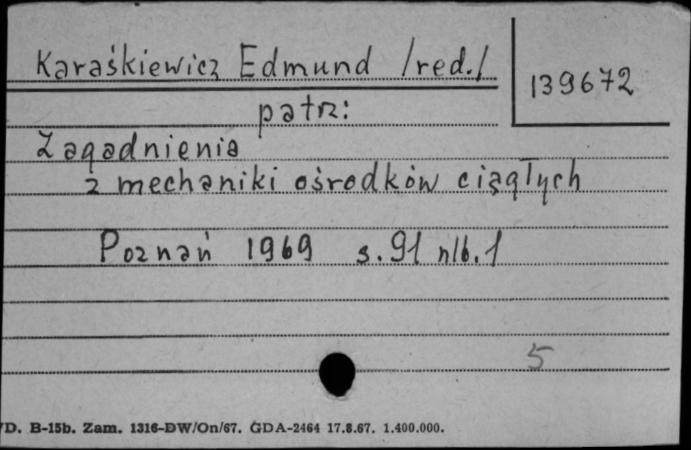 Karaśkiewicz Edmund /red./
139672
patrz:
Zagadnienia
z mechaniki ośrodków ciągłych
Poznań 1969 s. 91 nlb. 1
5
D. B-15b. Zam. 1316-DW/On/67. GDA-2464 17.8.67. 1.400.000.